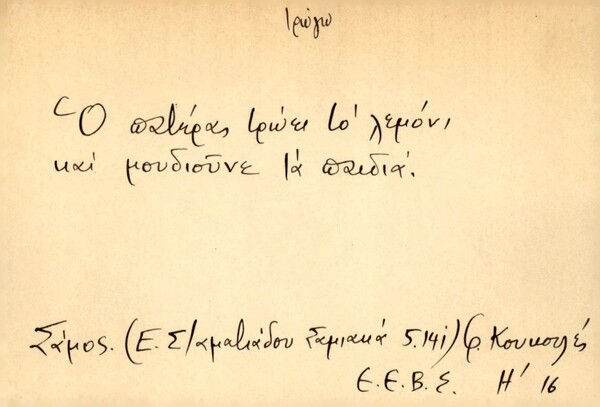 τρώγω
Ὁ πατέρας τρώει τὸ λεμόνι
καὶ μουδιοῦνε τὰ παιδιά.
Σάμος. (Ε. Σταματιάδου Σαμιακά 5.141) Φ. Κουκουλές
Ε.Ε.Β.Σ. Η' 16